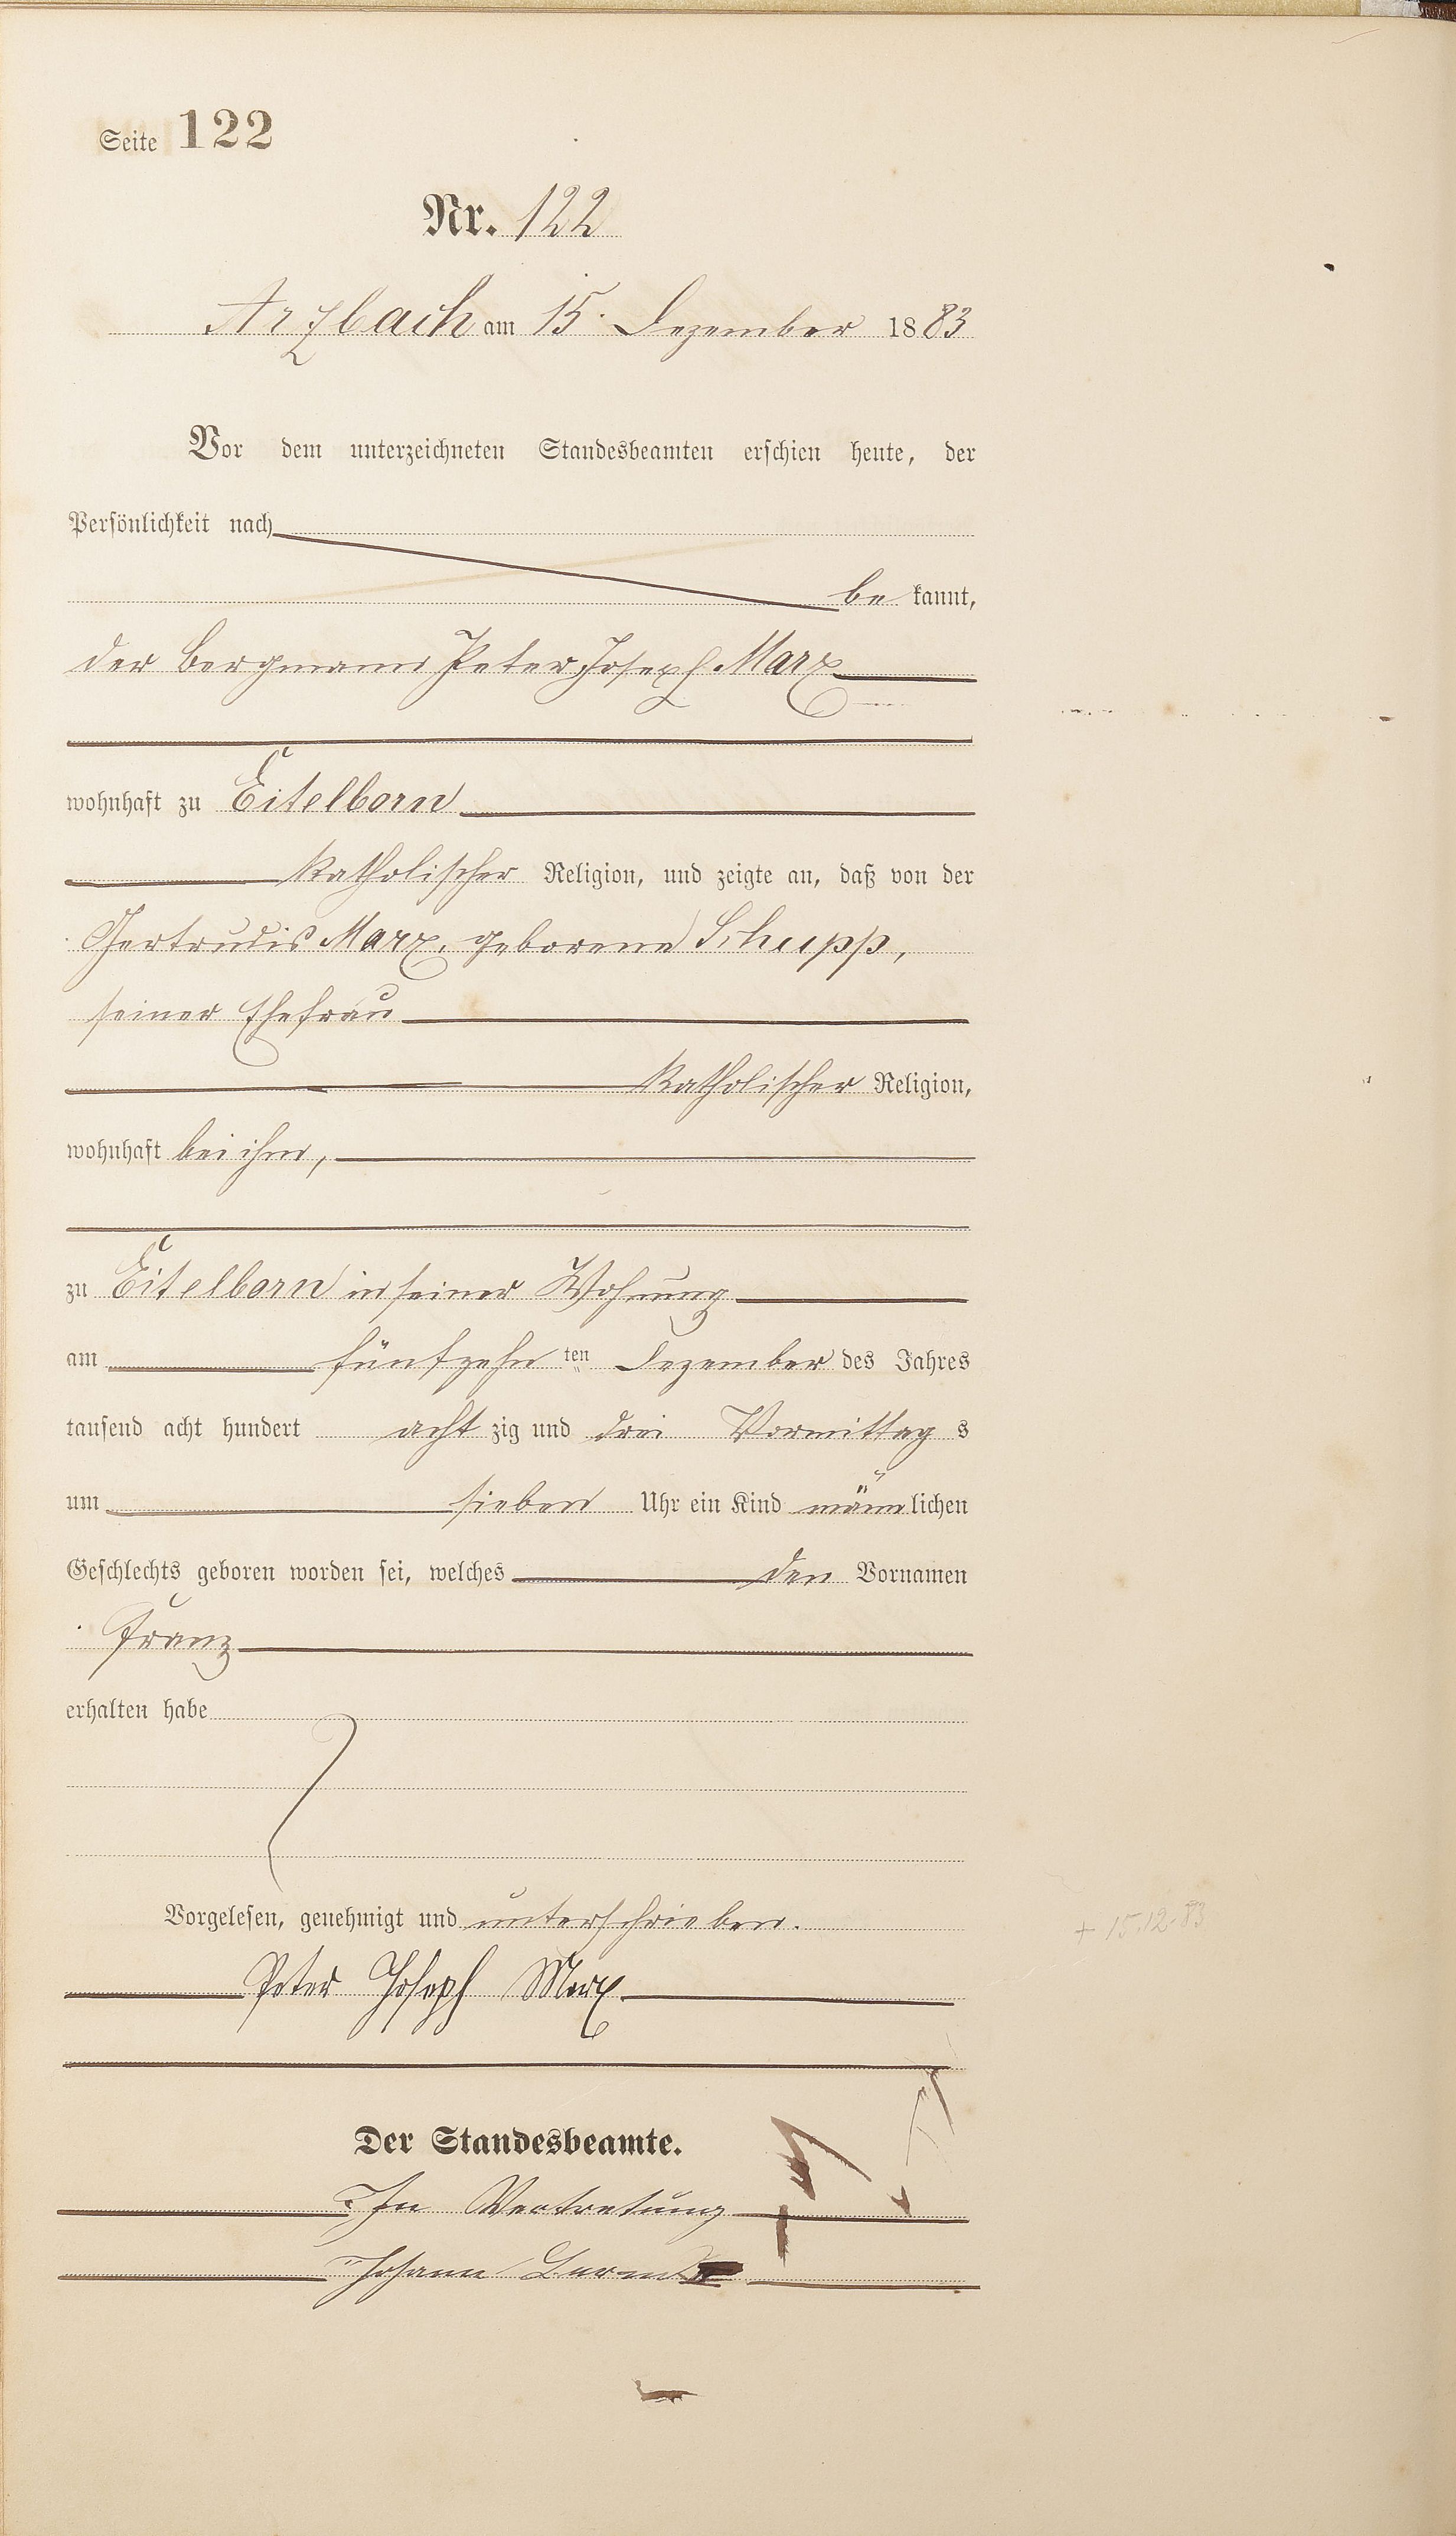 Seite 122
Nr. 122
Arzbach am 15. Dezember 1883
Vor dem unterzeichneten Standesbeamten erschien heute, der
Persönlichkeit nach
be kannt,
der Bergmann Peter Joseph Marx
wohnhaft zu Eitelborn
katholischer Religion, und zeigte an, daß von der
Gertrudis Marx, geborene Schupp,
seiner Ehefrau
katholischer Religion,
wohnhaft bei ihm,
zu Eitelborn in seiner Wohnung
am fünfzehn ten Dezember des Jahres
tausend acht hundert acht zig und drei Vormittag s
um sieben Uhr ein Kind männlichen
Geschlechts geboren worden sei, welches den Vornamen
Franz
erhalten habe
Vorgelesen, genehmigt und unterschrieben.
+ 15.12.83
Peter Joseph Marx
Der Standesbeamte.
In Vertretung
Johann